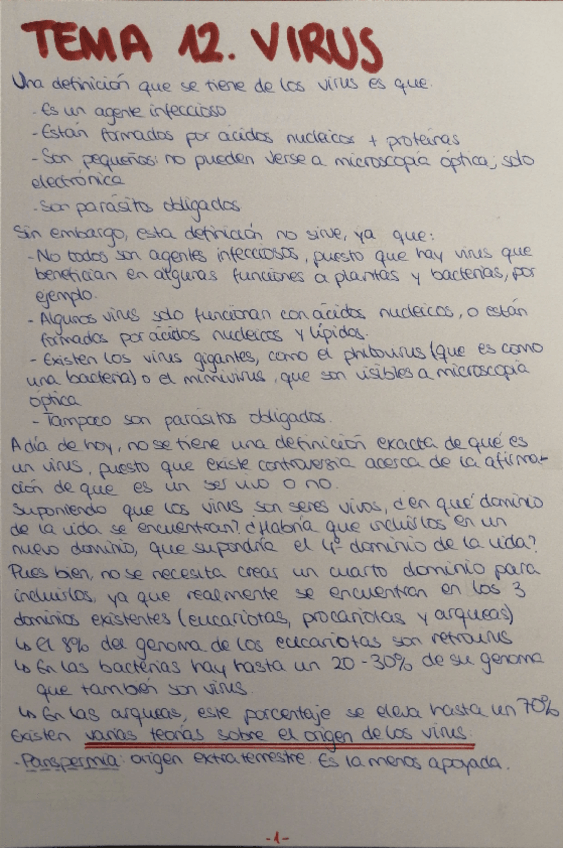 TEMA 12. VIRUS
Una definición que se tiene de los virus es que:
- Es un agente infeccioso
- Están formados por ácidos nucleicos + proteínas
- Son pequeños: no pueden verse a microscopía óptica, solo
electrónica
- Son parásitos obligados
Sin embargo, esta definición no sirve, ya que:
- No todos son agentes infecciosos, puesto que hay virus que
benefician en algunas funciones a plantas y bacterias, por
ejemplo.
- Algunos virus solo funcionan con ácidos nucleicos, o están
formados por ácidos nucleicos y lípidos.
- Existen los virus gigantes, como el (que es como
una bacteria) o el mimivirus, que son visibles a microscopía
óptica
- Tampoco son parásitos obligados.
A día de hoy, no se tiene una definición exacta de qué es
un virus, puesto que existe controversia acerca de la afirma-
ción de que es un ser vivo o no.
Suponiendo que los virus son seres vivos, ¿en qué dominio
de la vida se encuentran? ¿Habría que incluirlos en un
nuevo dominio, que supondría el 4º dominio de la vida?
Pues bien, no se necesita crear un cuarto dominio para
incluirlos, ya que realmente se encuentran en los 3
dominios existentes (eucariotas, procariotas y arqueas)
↳ El 8% del genoma de los eucariotas son retrovirus
↳ En las bacterias hay hasta un 20-30% de su genoma
que también son virus.
↳ En las arqueas, este porcentaje se eleva hasta un 70%
Existen varias teorías sobre el origen de los virus:
- Panspermia: origen extraterrestre. Es la menos apoyada.
-1-